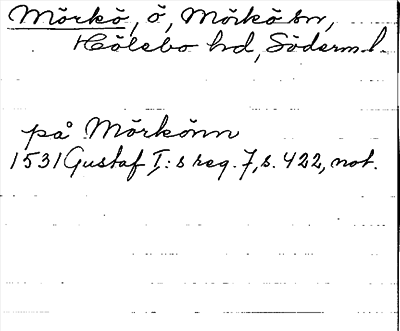 Mörkö, ö, Mörkö sn,
Hölebo hd, Söderm. l.
på Mörkönn
1531 Gustaf I:s reg. 7, s. 422, not.